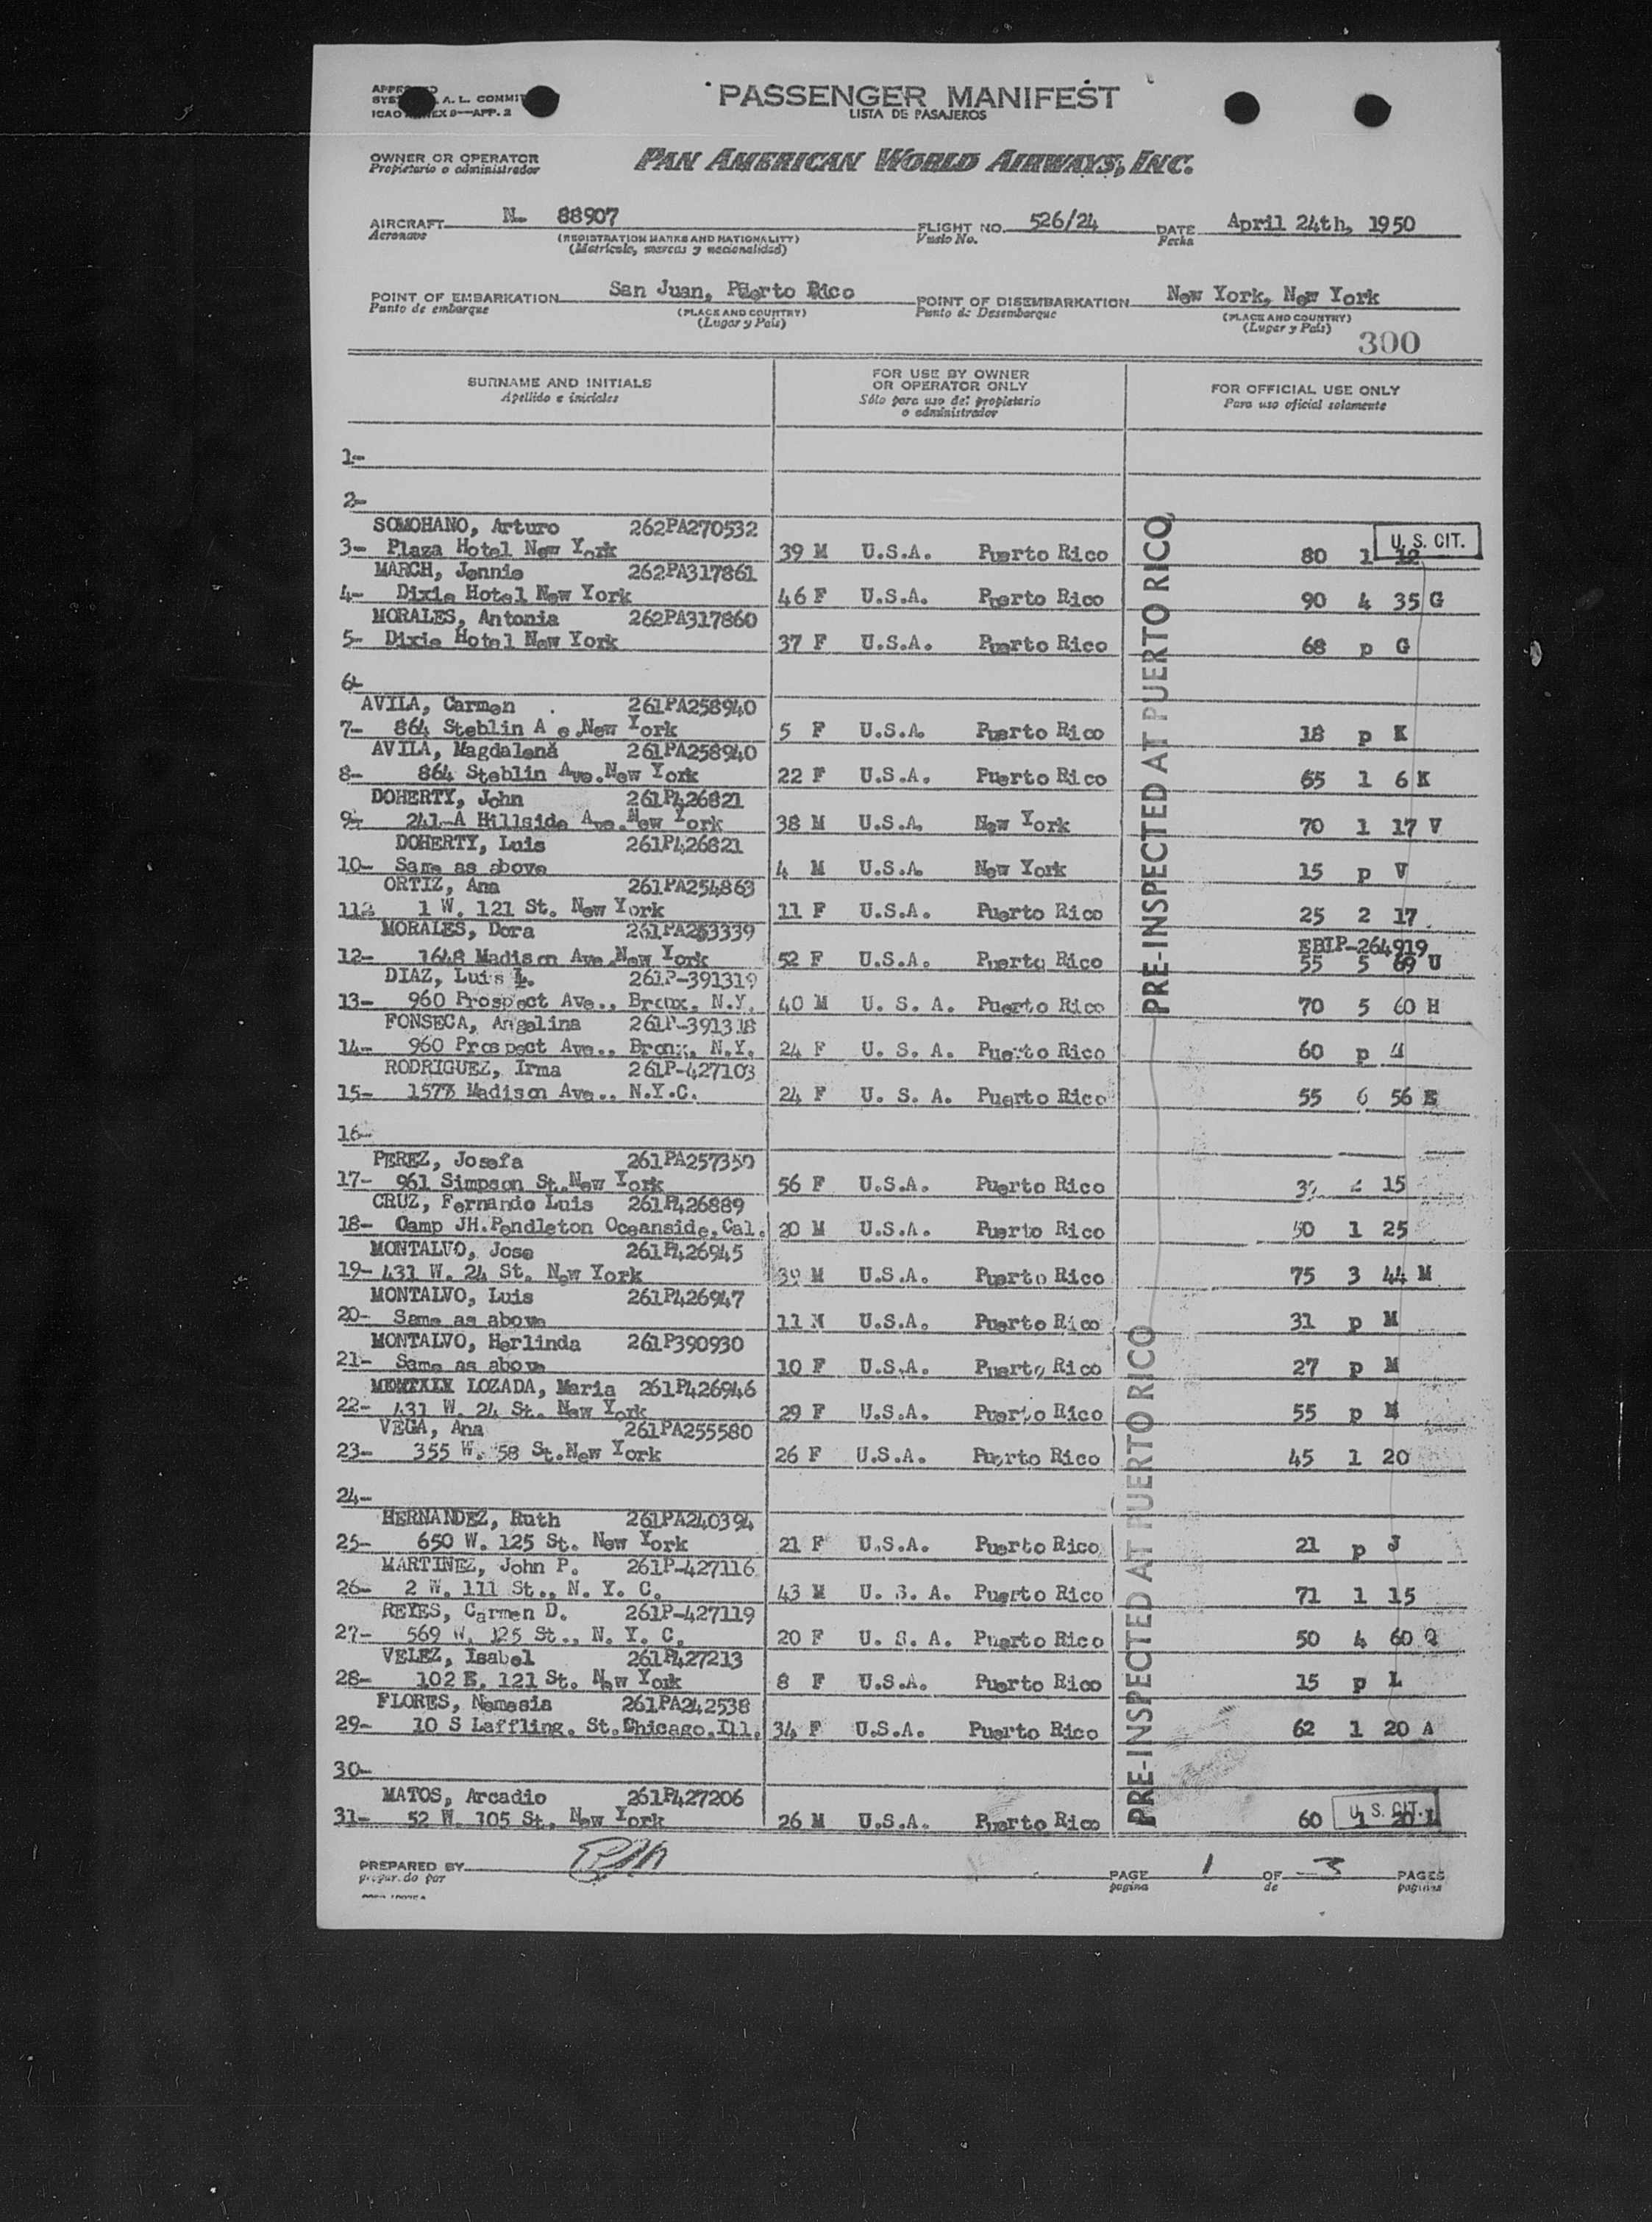 PASSENGER MANIFEST
LISTA DE PASAJEROS
A. L.
ICAO
OWNER OR OPERATOR
Propietario o administrador
PAN AMERICAN WORLD AIRWAYS, INC.
AIRCRAFT N- 88907 FLIGHT NO. 526/24 DATE April 24th, 1950
Aeronave (REGISTRATION MARKS AND NATIONALITY) Vuelo No. Fecha
(Matrícula, marcas y nacionalidad)
POINT OF EMBARKATION San Juan, Puerto Rico POINT OF DISEMBARKATION New York, New York
Punto de embarque (PLACE AND COUNTRY) Punto de Desembarque (PLACE AND COUNTRY)
(Lugar y País) (Lugar y País)
300
SURNAME AND INITIALS FOR USE BY OWNER OR OPERATOR ONLY FOR OFFICIAL USE ONLY
Apellido e iniciales Sólo para uso del propietario o administrador Para uso oficial solamente
1-
2-
SOMOHANO, Arturo 262PA270532
3- Plaza Hotel New York 39 M U.S.A. Puerto Rico 80 1 12
U. S. CIT.
MARCH, Jennie 262PA317861
4- Dixie Hotel New York 46 F U.S.A. Puerto Rico 90 4 35 G
MORALES, Antonia 262PA317860
5- Dixie Hotel New York 37 F U.S.A. Puerto Rico 68 p G
6-
AVILA, Carmen 261PA258940
7- 864 Steblin A e.New York 5 F U.S.A. Puerto Rico 18 p K
AVILA, Magdalena 261PA258940
8- 864 Steblin Ave.New York 22 F U.S.A. Puerto Rico 55 1 6 K
DOHERTY, John 261P426821
9- 241-A Hillside Ave.New York 38 M U.S.A. New York 70 1 17 V
DOHERTY, Luis 261P426821
10- Same as above 4 M U.S.A. New York 15 p V
ORTIZ, Ana 261PA254863
11- 1 W. 121 St. New York 11 F U.S.A. Puerto Rico 25 2 17
MORALES, Dora 261PA253339 EBIP-264919
12- 1648 Madison Ave.New York 52 F U.S.A. Puerto Rico 55 5 69 U
DIAZ, Luis L. 261P-391319
13- 960 Prospect Ave., Bronx, N.Y. 40 M U. S. A. Puerto Rico 70 5 60 H
FONSECA, Angelina 261P-391318
14- 960 Prospect Ave., Bronx, N.Y. 24 F U. S. A. Puerto Rico 60 p
RODRIGUEZ, Irma 261P-427103
15- Madison Ave., N.Y.C. 24 F U. S. A. Puerto Rico 55 6 56 E
16-
PEREZ, Josefa 261PA257350
17- 961 Simpson St.New York 56 F U.S.A. Puerto Rico 15
CRUZ, Fernando Luis 261P426889
18- Camp JH.Pendleton Oceanside,Cal. 20 M U.S.A. Puerto Rico 50 1 25
MONTALVO, Jose 261P426945
19- 431 W. 24 St. New York 39 M U.S.A. Puerto Rico 75 3 44 M
MONTALVO, Luis 261P426947
20- Same as above 11 M U.S.A. Puerto Rico 31 p M
MONTALVO, Herlinda 261P390930
21- Same as above 10 F U.S.A. Puerto Rico 27 p M
LOZADA, Maria 261P426946
22- 431 W. 24 St. New York 29 F U.S.A. Puerto Rico 55 p M
VEGA, Ana 261PA255580
23- 355 W. 58 St.New York 26 F U.S.A. Puerto Rico 45 1 20
24-
HERNANDEZ, Ruth 261PA240394
25- 650 W. 125 St. New York 21 F U.S.A. Puerto Rico 21 p J
MARTINEZ, John P. 261P-427116
26- 2 W. 111 St., N. Y. C. 43 M U. S. A. Puerto Rico 71 1 15
REYES, Carmen D. 261P-427119
27- 569 W. 125 St., N. Y. C. 20 F U. S. A. Puerto Rico 50 4 60 Q
VELEZ, Isabel 261P427213
28- 102 E. 121 St. New York 8 F U.S.A. Puerto Rico 15 p L
FLORES, Nemesia 261PA242538
29- 10 S Laffling. St.Chicago,Ill. 34 F U.S.A. Puerto Rico 62 1 20 A
30-
MATOS, Arcadio 261P427206
31- 52 W. 105 St. New York 26 M U.S.A. Puerto Rico 60 1 20 L
U. S. CIT.
PRE-INSPECTED AT PUERTO RICO
PRE-INSPECTED AT PUERTO RICO
PREPARED BY PAGE 1 OF 3 PAGES
preparado por pagina de paginas